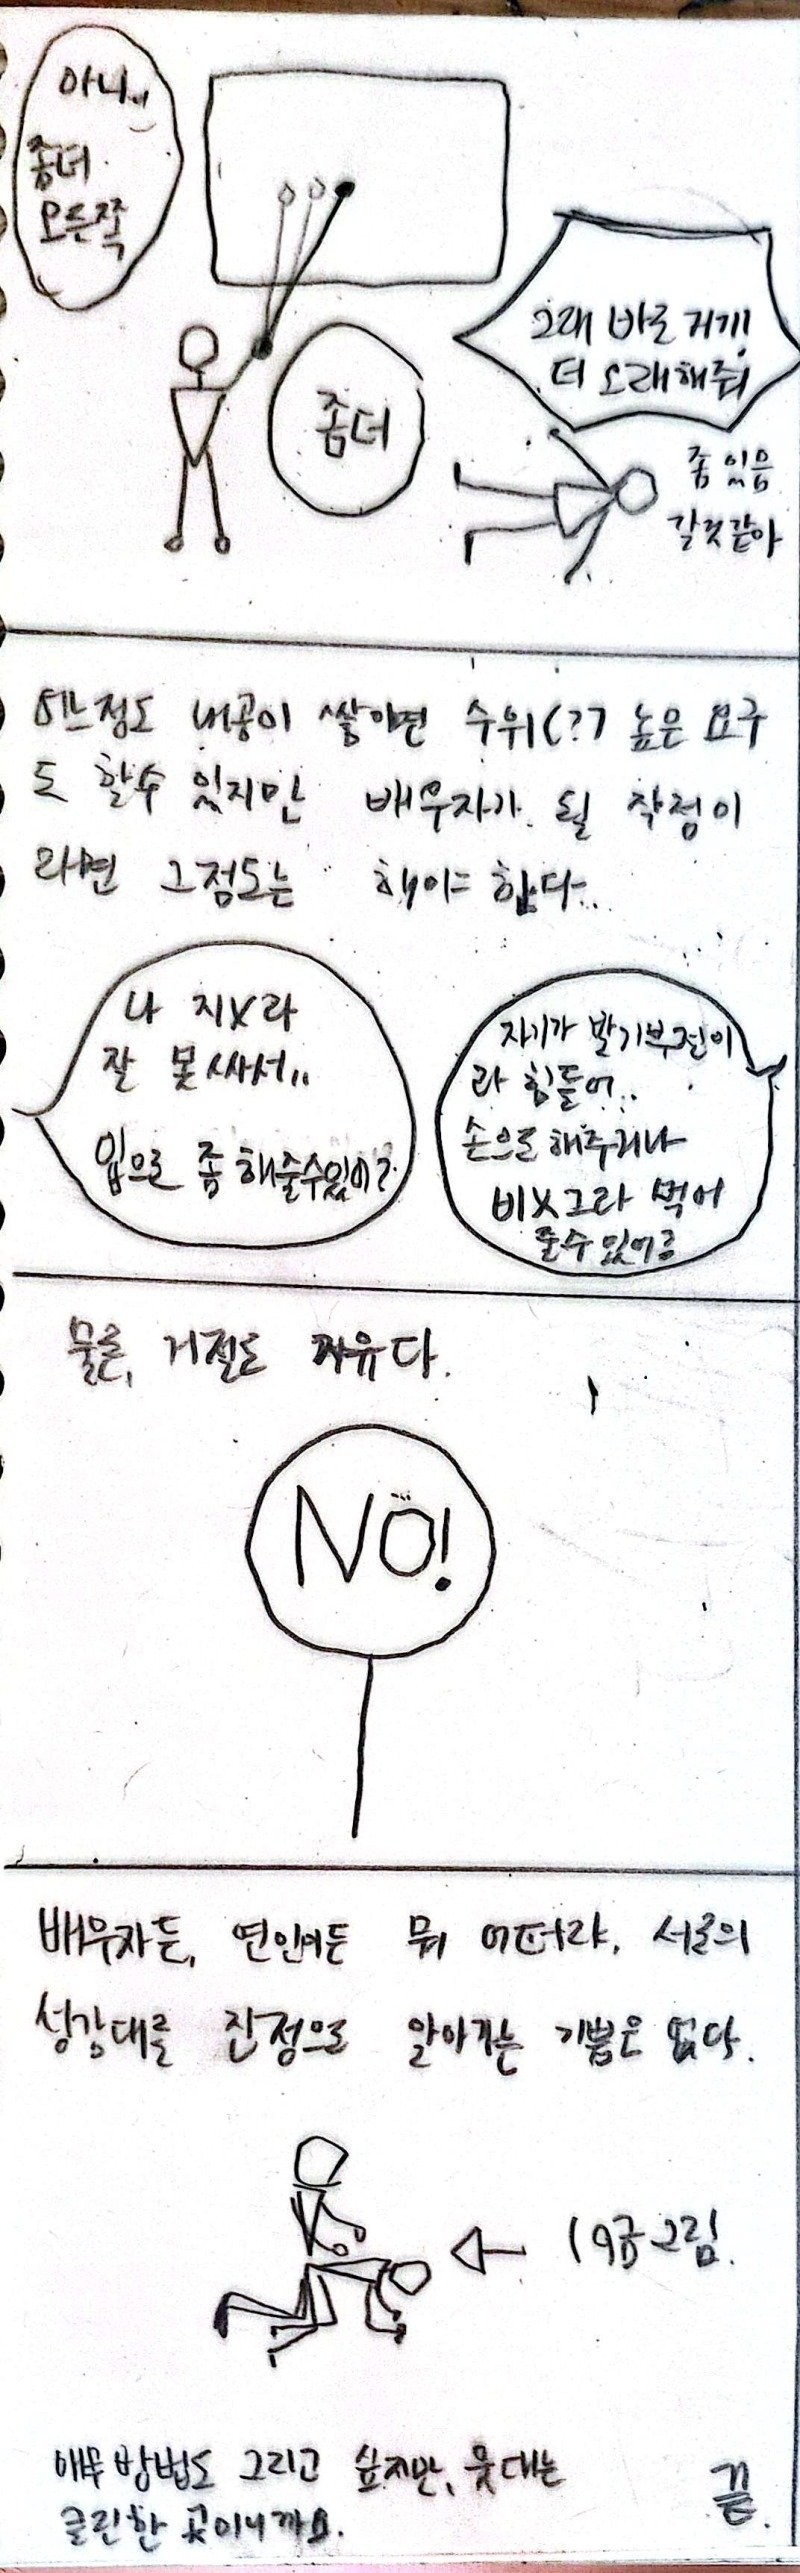 아니..
좀더
오른쪽
좀더
그래 바로 거기!
더 오래해줘
좀 있음
갈것같아
어느정도 내공이 쌓이면 수위(?7 높은 요구
도 할수 있지만 배우자가 될 작정이
라면 그정도는 해야 합다..
나 지X라
잘 못싸서..
입으로 좀 해줄수있어?
자기가 발기부전이
라 힘들어..
손으로 해주거나
비X그라 먹어
줄수있어?
물론, 거절도 자유다.
NO!
배우자든, 연인이든 뭐 어떠랴, 서로의
성감대를 진정으로 알아가는 기쁨은 없다.
19금그림.
애무방법도 그리고 싶지만, 웃대는
클린한 곳이니까요.
끝.